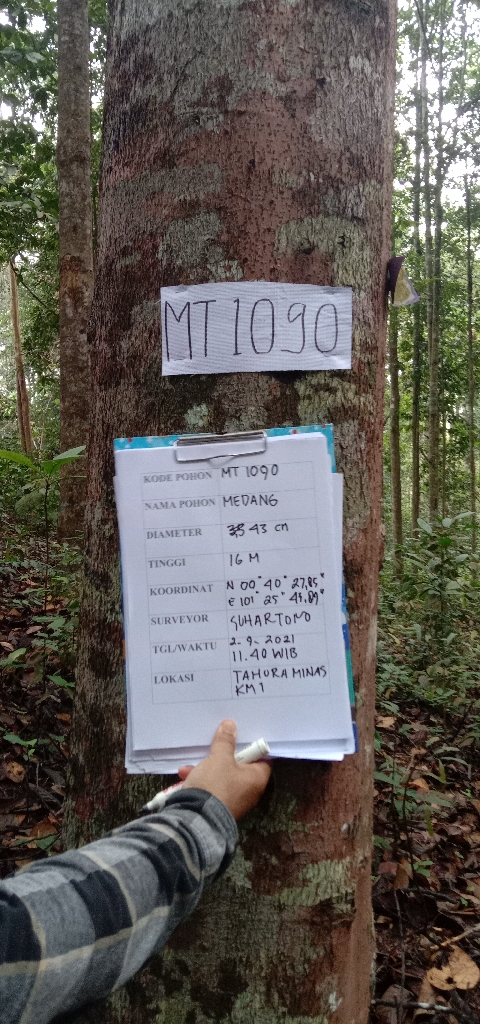 MT 1090
KODE POHON MT 1090
NAMA POHON MEDANG
DIAMETER 43 cm
TINGGI 16 M
KOORDINAT N 00° 40' 27,85"
E 101° 25'
SURVEYOR SUHARTONO
TGL/WAKTU 2-9-2021
11.40 WIB
LOKASI TAHURA MINAS
KM 1